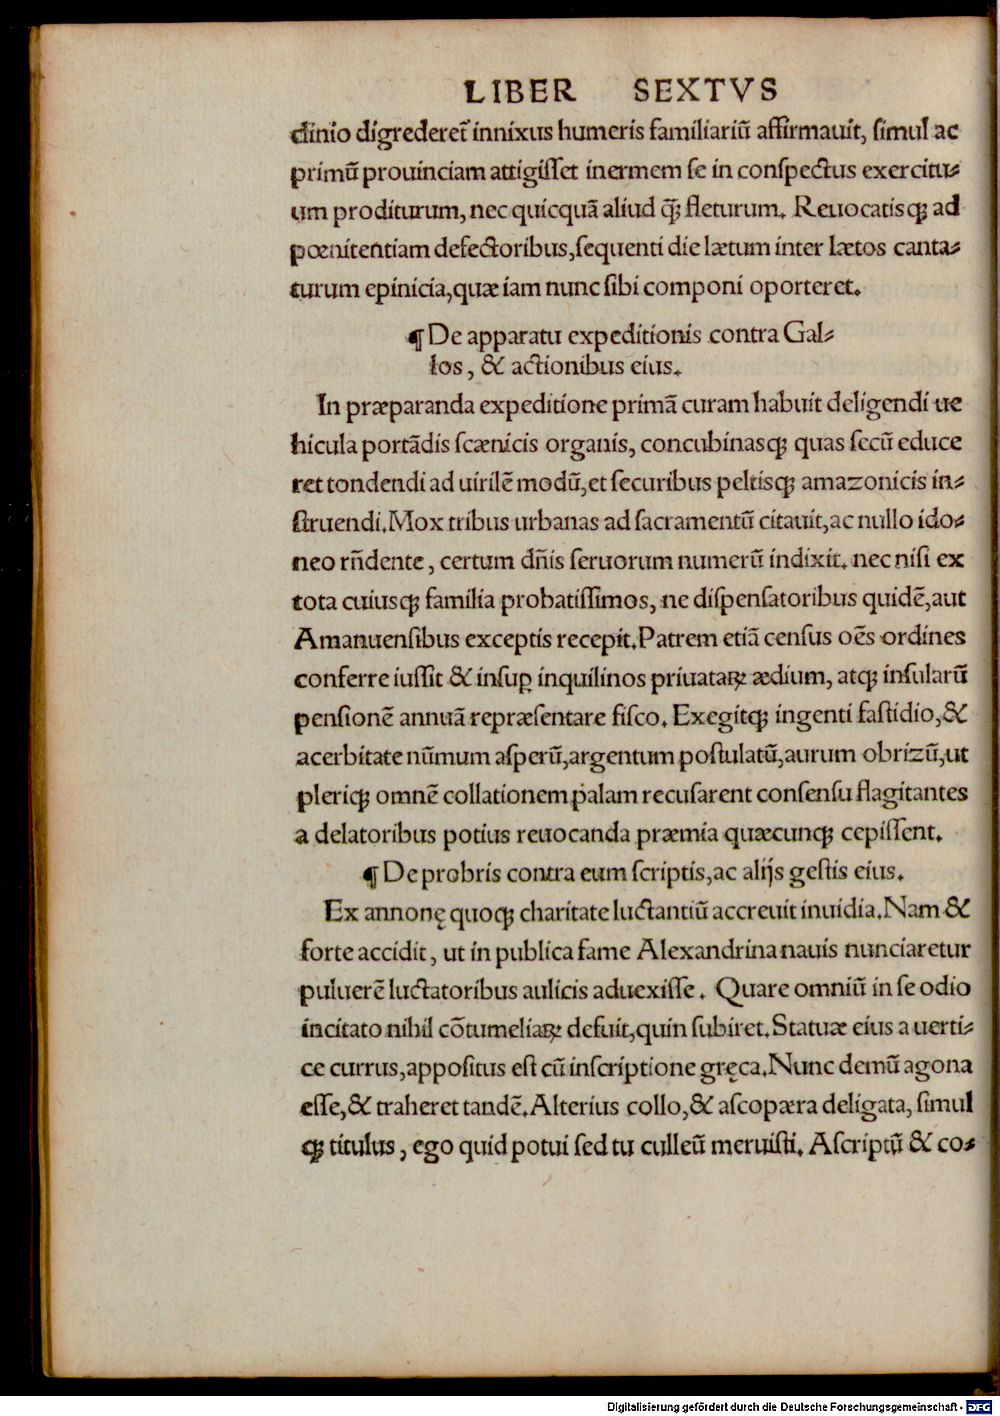 LIBER SEXTVS
dinio digrederet᷑ innixus humeris familiariū affirmauit, simul ac
primū prouinciam attigisset inermem se in conspectus exercitu⸗
um proditurum, nec quicquā aliud q̄ꝫ fleturum. Reuocatisqꝫ ad
pœnitentiam defectoribus, sequenti die lætum inter lætos canta⸗
turum epinicia, quæ iam nunc sibi componi oporteret.
¶ De apparatu expeditionis contra Gal⸗
los, & actionibus eius.
In præparanda expeditione primā curam habuit deligendi ue
hicula portādis scænicis organis, concubinasqꝫ quas secū educe
ret tondendi ad uirilē modū, et securibus peltisqꝫ amazonicis in⸗
struendi. Mox tribus urbanas ad sacramentū citauit, ac nullo ido⸗
neo rn̄dente, certum dn̄is seruorum numerū indixit. nec nisi ex
tota cuiusqꝫ familia probatissimos, ne dispensatoribus quidē, aut
Amanuensibus exceptis recepit. Patrem etiā census oēs ordines
conferre iussit & insuꝑ inquilinos priuataꝝ ædium, atqꝫ insularū
pensionē annuā repræsentare fisco. Exegitqꝫ ingenti fastidio, &
acerbitate nūmum asperū, argentum postulatū, aurum obrizū, ut
pleriqꝫ omnē collationem palam recusarent consensu flagitantes
a delatoribus potius reuocanda præmia quæcunqꝫ cepissent.
¶ De probris contra eum scriptis, ac alijs gestis eius.
Ex annonę quoqꝫ charitate luctantiū accreuit inuidia. Nam &
forte accidit, ut in publica fame Alexandrina nauis nunciaretur
puluerē luctatoribus aulicis aduexisse. Quare omniū in se odio
incitato nihil cōtumeliaꝝ defuit, quin subiret. Statuæ eius a uerti⸗
ce currus, appositus est cū inscriptione gręca. Nunc demū agona
esse, & traheret tandē. Alterius collo, & ascopæra deligata, simul
qꝫ titulus, ego quid potui sed tu culleū meruisti. Ascriptū & co⸗
Digitalisierung gefördert durch die Deutsche Forschungsgemeinschaft - DFG